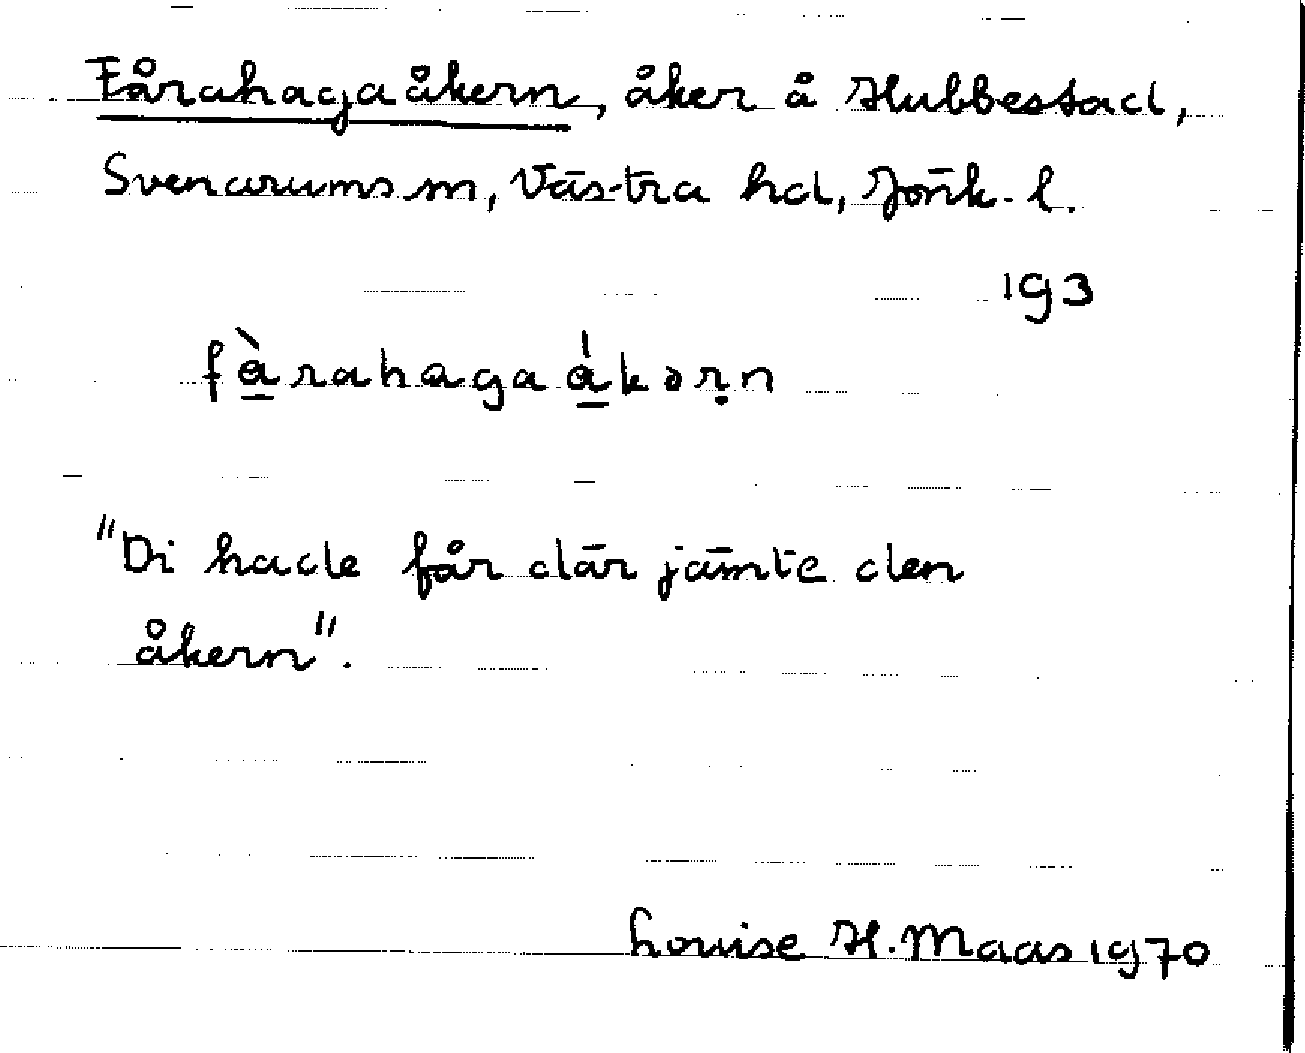 Fårahagaåkern, åker å Hubbestad,
Svenarums sn, Västra hd, Jönk. l.
193
fàrahagaákərṇ
"Di hade får där jämte den
åkern".
Louise H. Maas 1970